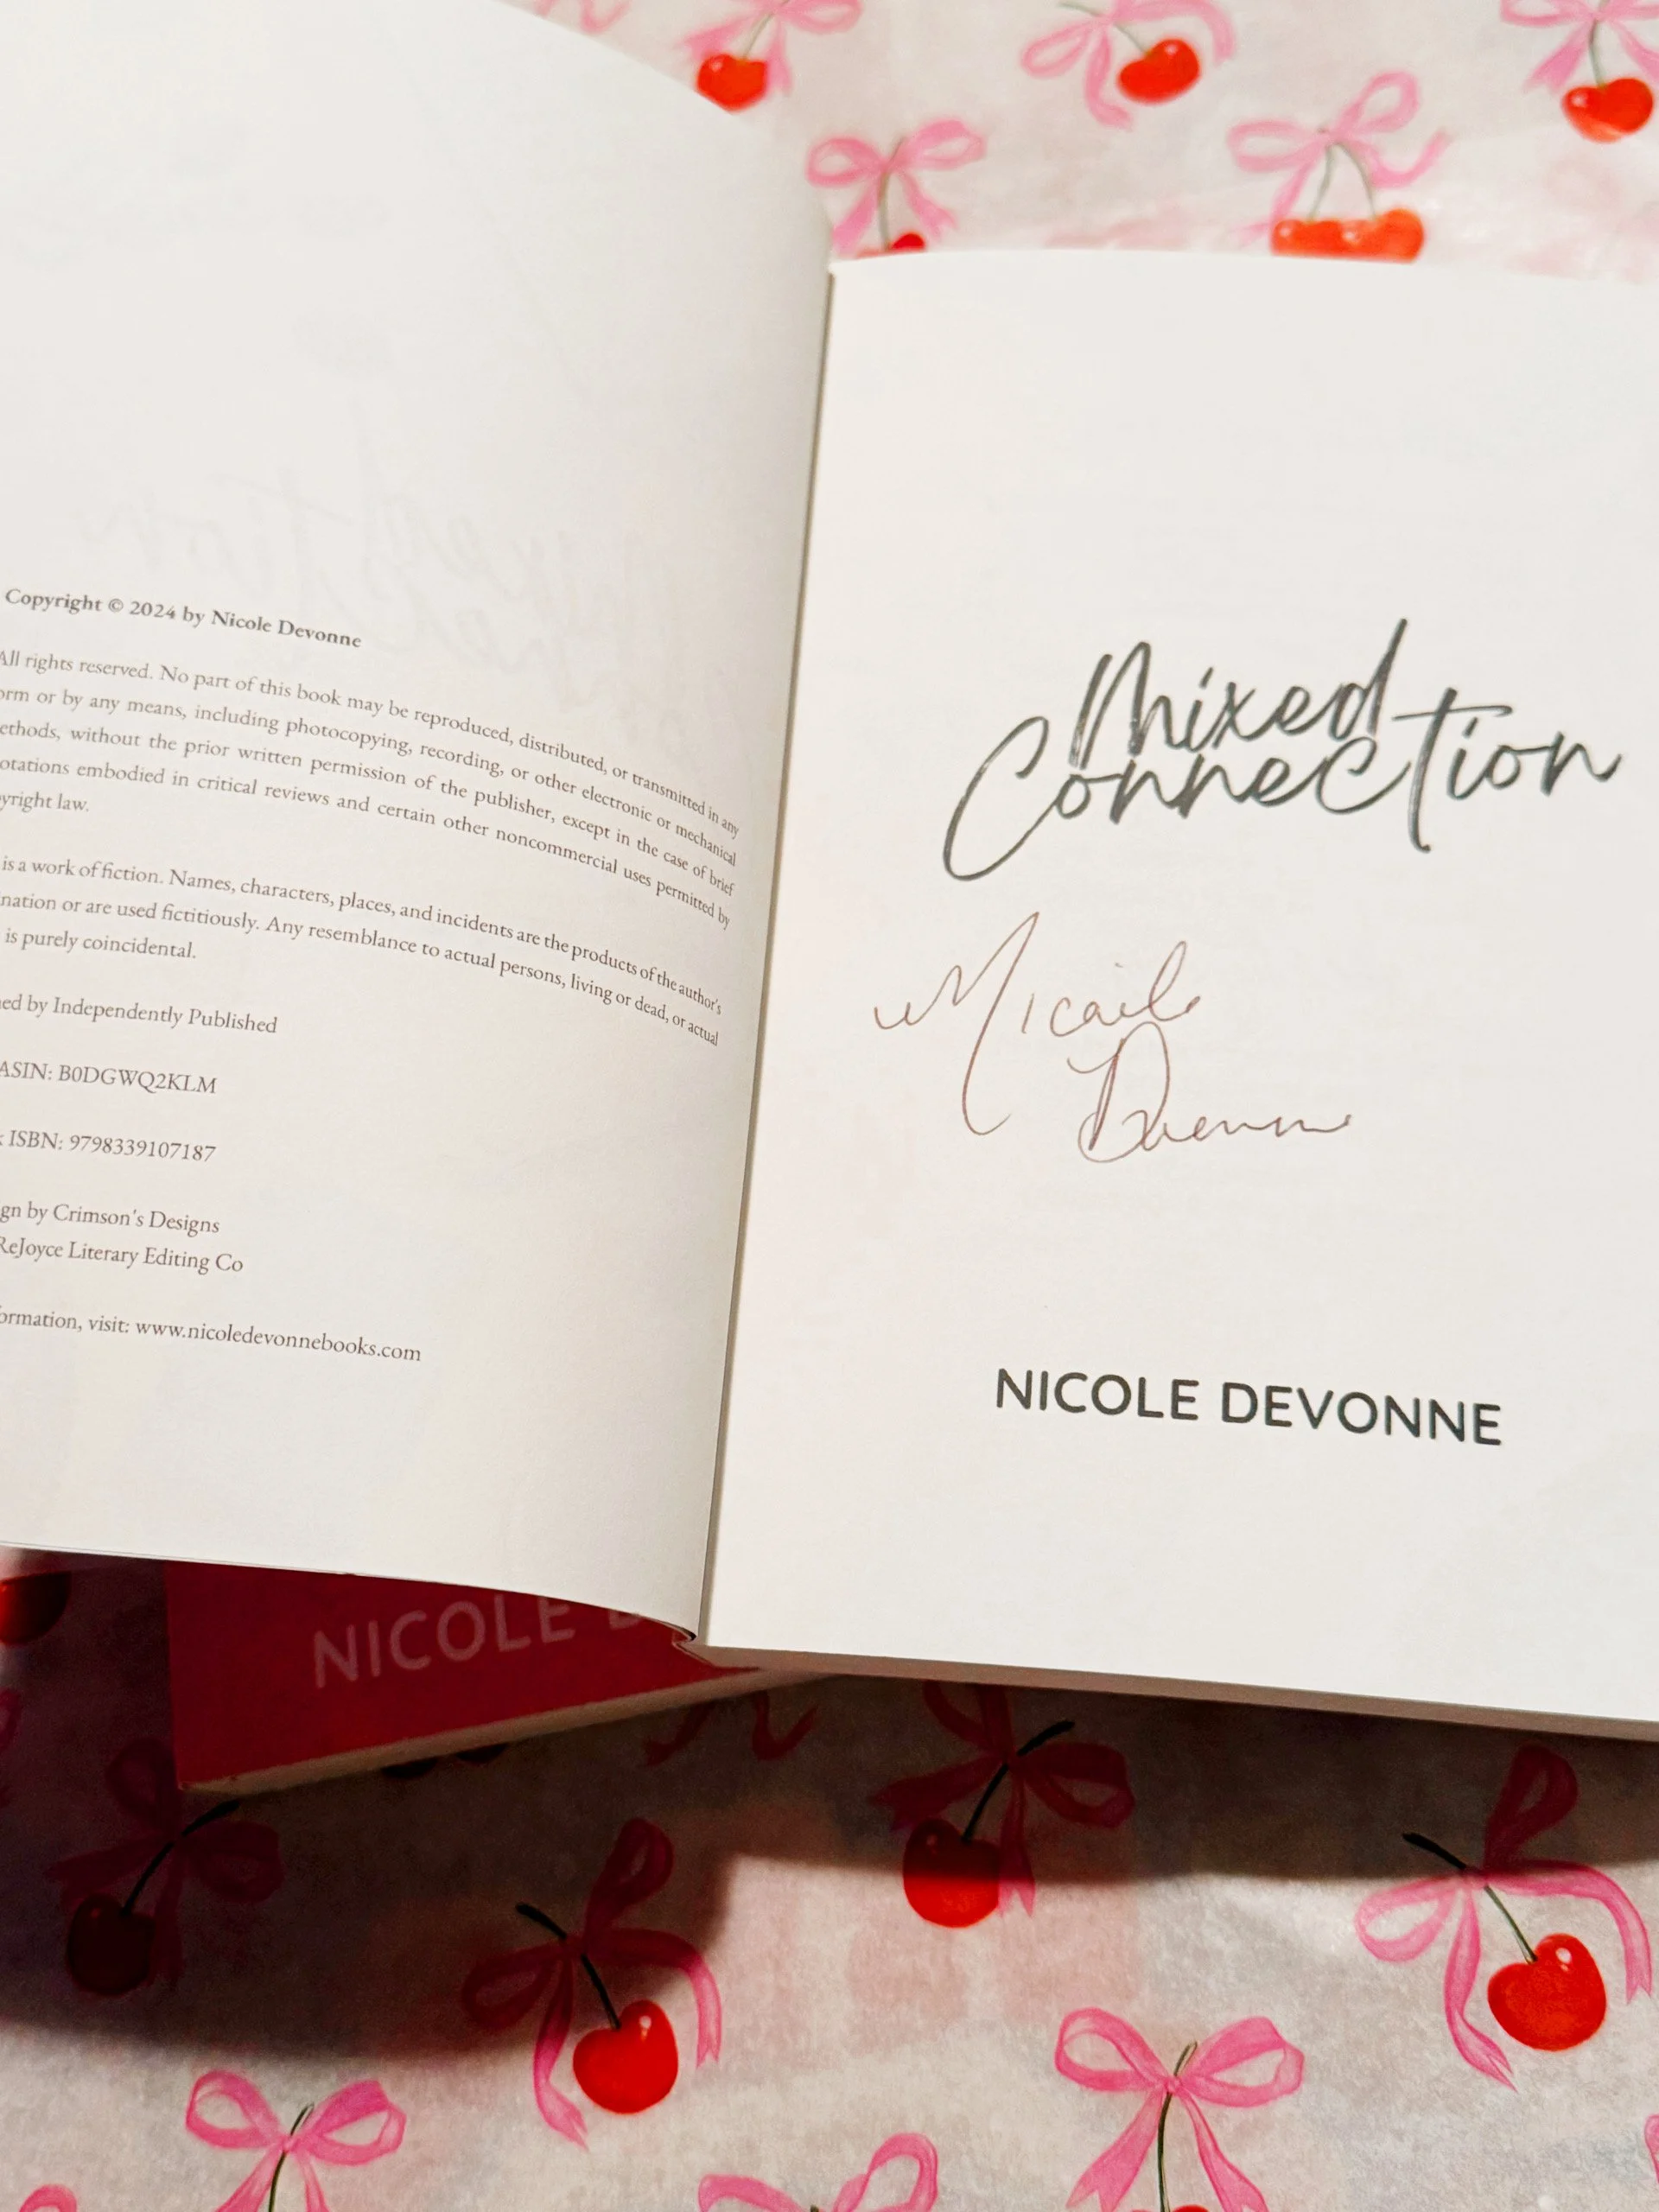 Copyright © 2024 by Nicole Devonne
All rights reserved. No part of this book may be reproduced, distributed, or transmitted in any
orm or by any means, including photocopying, recording, or other electronic or mechanical
ethods, without the prior written permission of the publisher, except in the case of brief
otations embodied in critical reviews and certain other noncommercial uses permitted by
yright law.
is a work of fiction. Names, characters, places, and incidents are the products of the author's
nation or are used fictitiously. Any resemblance to actual persons, living or dead, or actual
is purely coincidental.
ed by Independently Published
ASIN: B0DGWQ2KLM
ISBN: 9798339107187
gn by Crimson's Designs
ReJoyce Literary Editing Co
ormation, visit: www.nicoledevonnebooks.com
Mixed
Connection
NICOLE DEVONNE
NICOLE